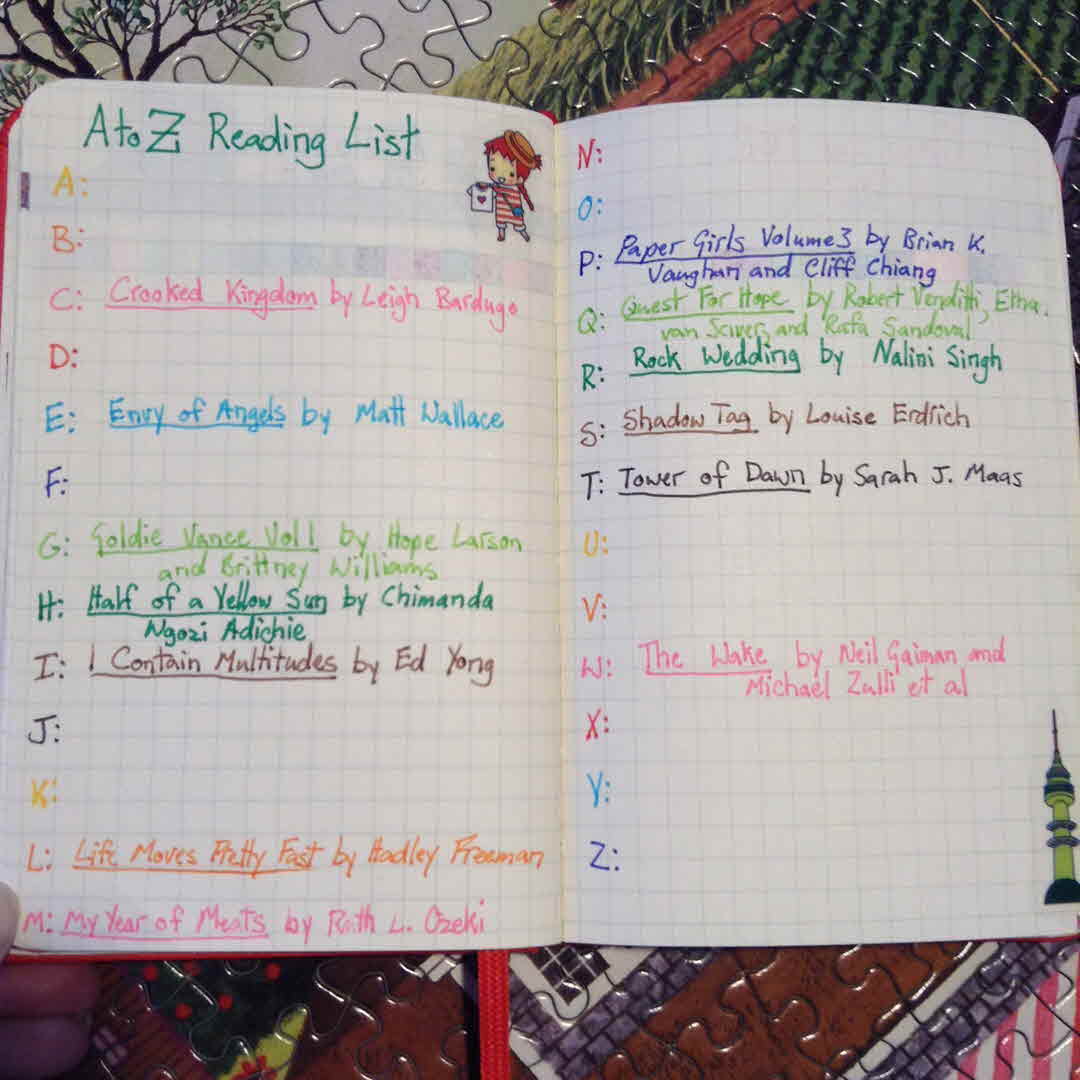 A to Z Reading List
A:
B:
C: Crooked Kingdom by Leigh Bardugo
D:
E: Envy of Angels by Matt Wallace
F:
G: Goldie Vance Vol 1 by Hope Larson
and Brittney Williams
H: Half of a Yellow Sun by Chimanda
Ngozi Adichie
I: I Contain Multitudes by Ed Yong
J:
K:
L: Life Moves Pretty Fast by Hadley Freeman
M: My Year of Meats by Ruth L. Ozeki
N:
O:
P: Paper Girls Volume 3 by Brian K.
Vaughan and Cliff Chiang
Q: Quest For Hope by Robert Venditti, Ethan
van Sciver, and Rafa Sandoval
R: Rock Wedding by Nalini Singh
S: Shadow Tag by Louise Erdrich
T: Tower of Dawn by Sarah J. Maas
U:
V:
W: The Wake by Neil Gaiman and
Michael Zulli et al
X:
Y:
Z: